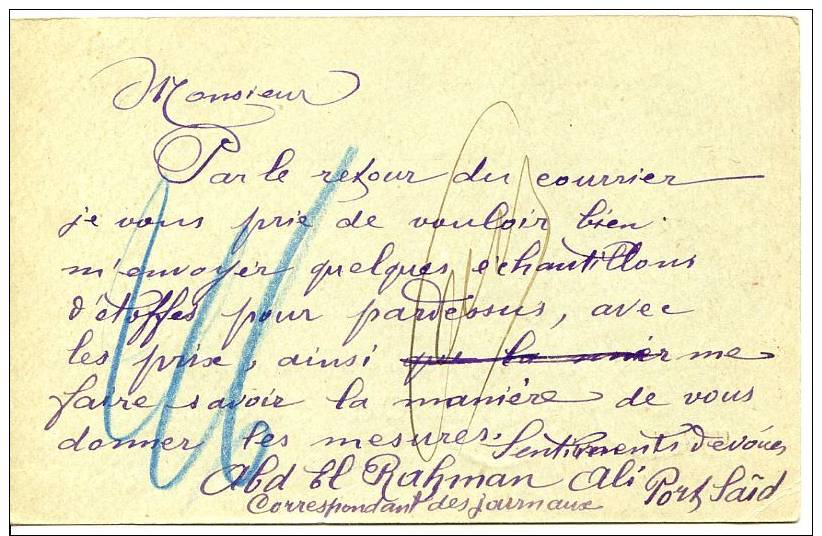 Monsieur
Par le retour du courrier
je vous prie de vouloir bien
m'envoyer quelques échantillons
d'étoffes pour pardessus, avec
les prix, ainsi que la manier me
faire savoir la manière de vous
donner les mesures.
Sentiments dévoués
Abd El Rahman Ali Port Saïd
Correspondant des journaux